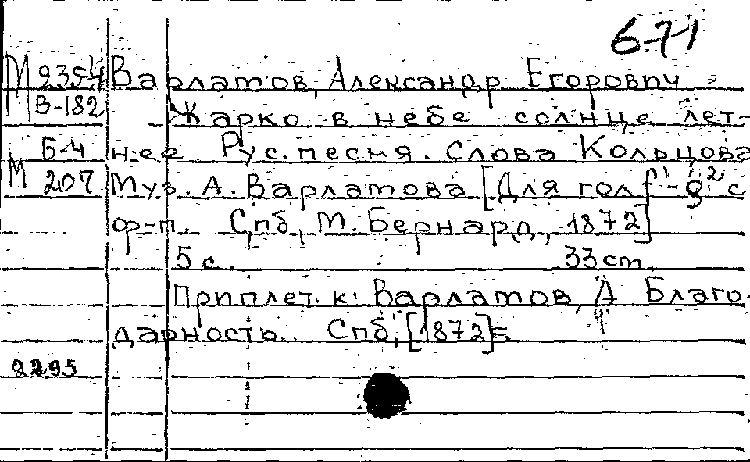 671
М 9354 Варламов, Александр Егорович
В-182 Жарко в небе солнце лет-
Б-4 нее Рус. песня. Слова Кольцова
М 207 Муз. А. Варламова [Для гол. f¹-g² с
ф-п. Спб, М. Бернард, 1872]
5 с. 33 cm
Приплет. к: Варламов, А Благо
дарность. Спб, [1872]
2295